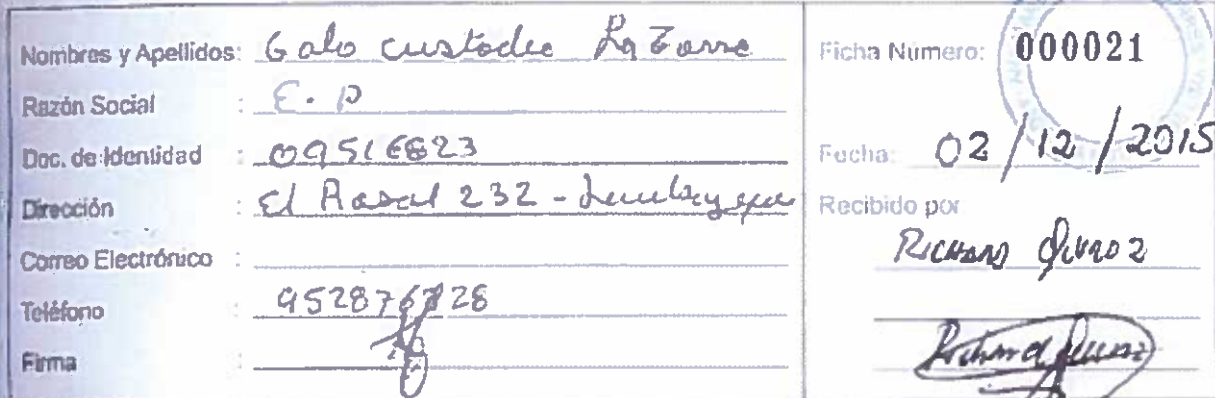 Nombres y Apellidos: Galo custodio La Torre
Razón Social : E. P
Doc. de Identidad : 09516823
Dirección : El Rosal 232 - Lambayeque
Correo Electrónico :
Teléfono : 952876828
Firma :
Ficha Número: 000021
Fecha: 02/12/2015
Recibido por
Richard Quiroz